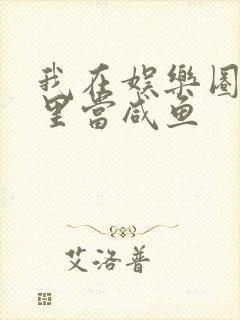 我在娱樂圈
里當咸鱼
艾洛普